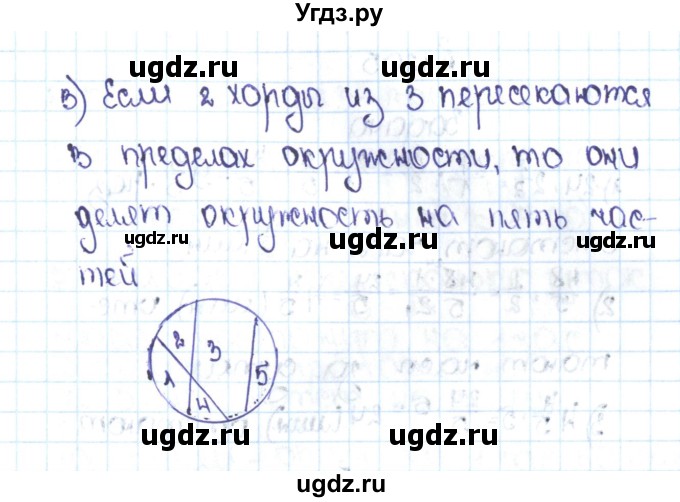 Угдз.ру
ugdz.ru ugdz.ru
3) Если 2 хорды из 3 пересекаются
в пределах окружности, то они
ugdz.ru ugdz.ru
делят окружность на пять час-
ugdz.ru ugdz.ru
тей
2 3
1 5
4
ugdz.ru ugdz.ru
ugdz.ru ugdz.ru